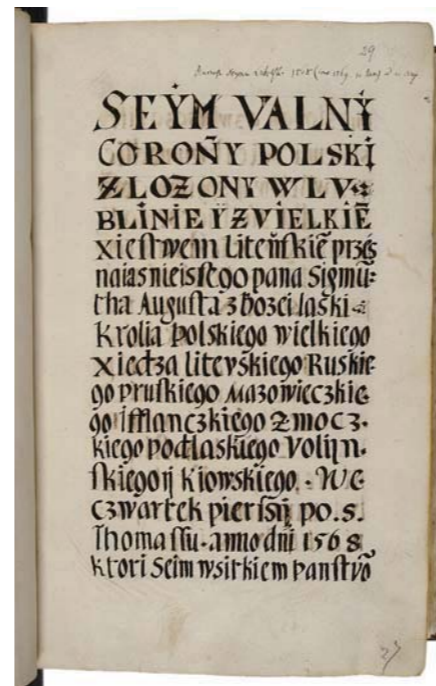 29
SEYM VALNY
CORON̄Y POLSKI
ZLOZONY W LV
BLINIE Y ZVIELKIĒ
xiestwem Liteńskiē przes
naiasnieissego pana Sigmū
tha Augusta z Bozei laski
Krolia Polskiego wielkiego
xiedza litevskiego Ruskie
go pruskiego Mazowieczkie
go Ifflanczkiego Zmocz
kiego podlaskiego Volijn
skiego ij Kiowskiego. We
czwartek pierssy po. S.
Thomassu. anno dn̄i 1568
ktori Seim wsitkiem panstvō
27